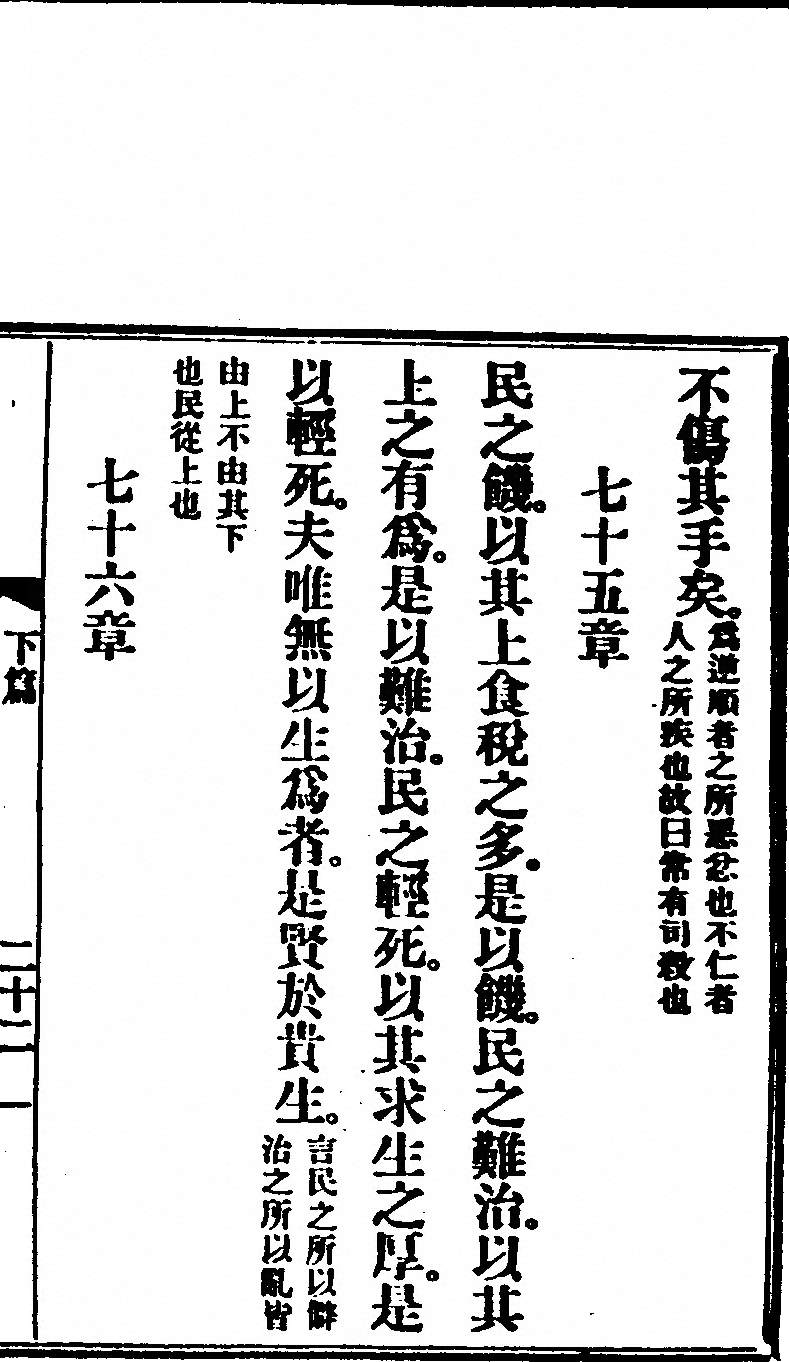 不傷其手矣。爲逆順者之所惡忿也不仁者
人之所疾也故曰常有司殺也
七十五章
民之饑。以其上食稅之多。是以饑。民之難治。以其
上之有爲。是以難治。民之輕死。以其求生之厚。是
以輕死。夫唯無以生爲者。是賢於貴生。言民之所以僻
治之所以亂皆
由上不由其下
也民從上也
七十六章
下篇
二十二